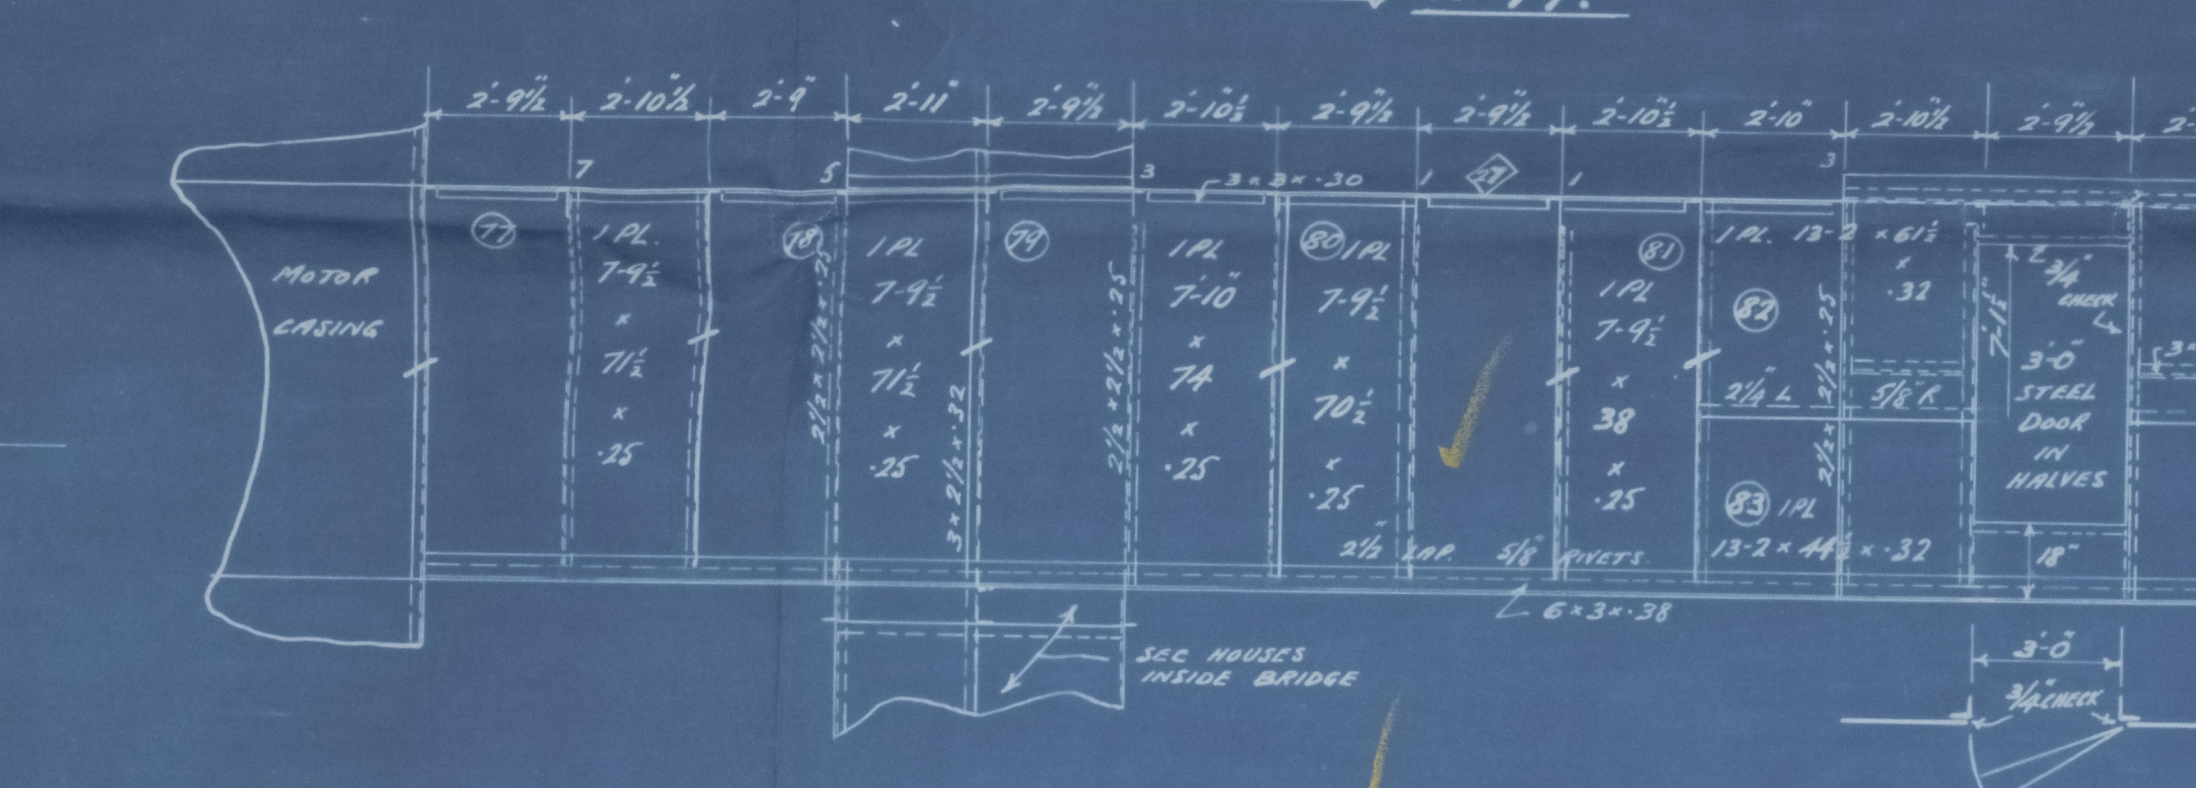 2'-9½" 2'-10½" 2'-9" 2'-11" 2'-9½" 2'-10½" 2'-9½" 2'-9½" 2'-10½" 2'-10" 2'-10½" 2'-9½" 2-
7 5 3 3×3×.30 1 1 3
MOTOR
CASING
77
1 PL.
7-9½
×
71½
×
.25
78
2½×2½×.25
1 PL
7-9½
×
71½
×
.25
3×2½×.32
79
2½×2½×.25
1 PL
7-10"
×
74
×
.25
80 1 PL
7-9½
×
70½
×
.25
2½" LAP. 5/8" RIVETS.
81
1 PL
7-9½
×
38
×
.25
1 PL. 13-2 × 61½
×
.32
82
2¼" L
2½×2½×.25
5/8" R
83 1 PL
13-2 × 44½ × .32
¾"
CHECK
3'-0"
STEEL
DOOR
IN
HALVES
18"
3×
6×3×.38
SEC HOUSES
INSIDE BRIDGE
3'-0"
¾" CHECK